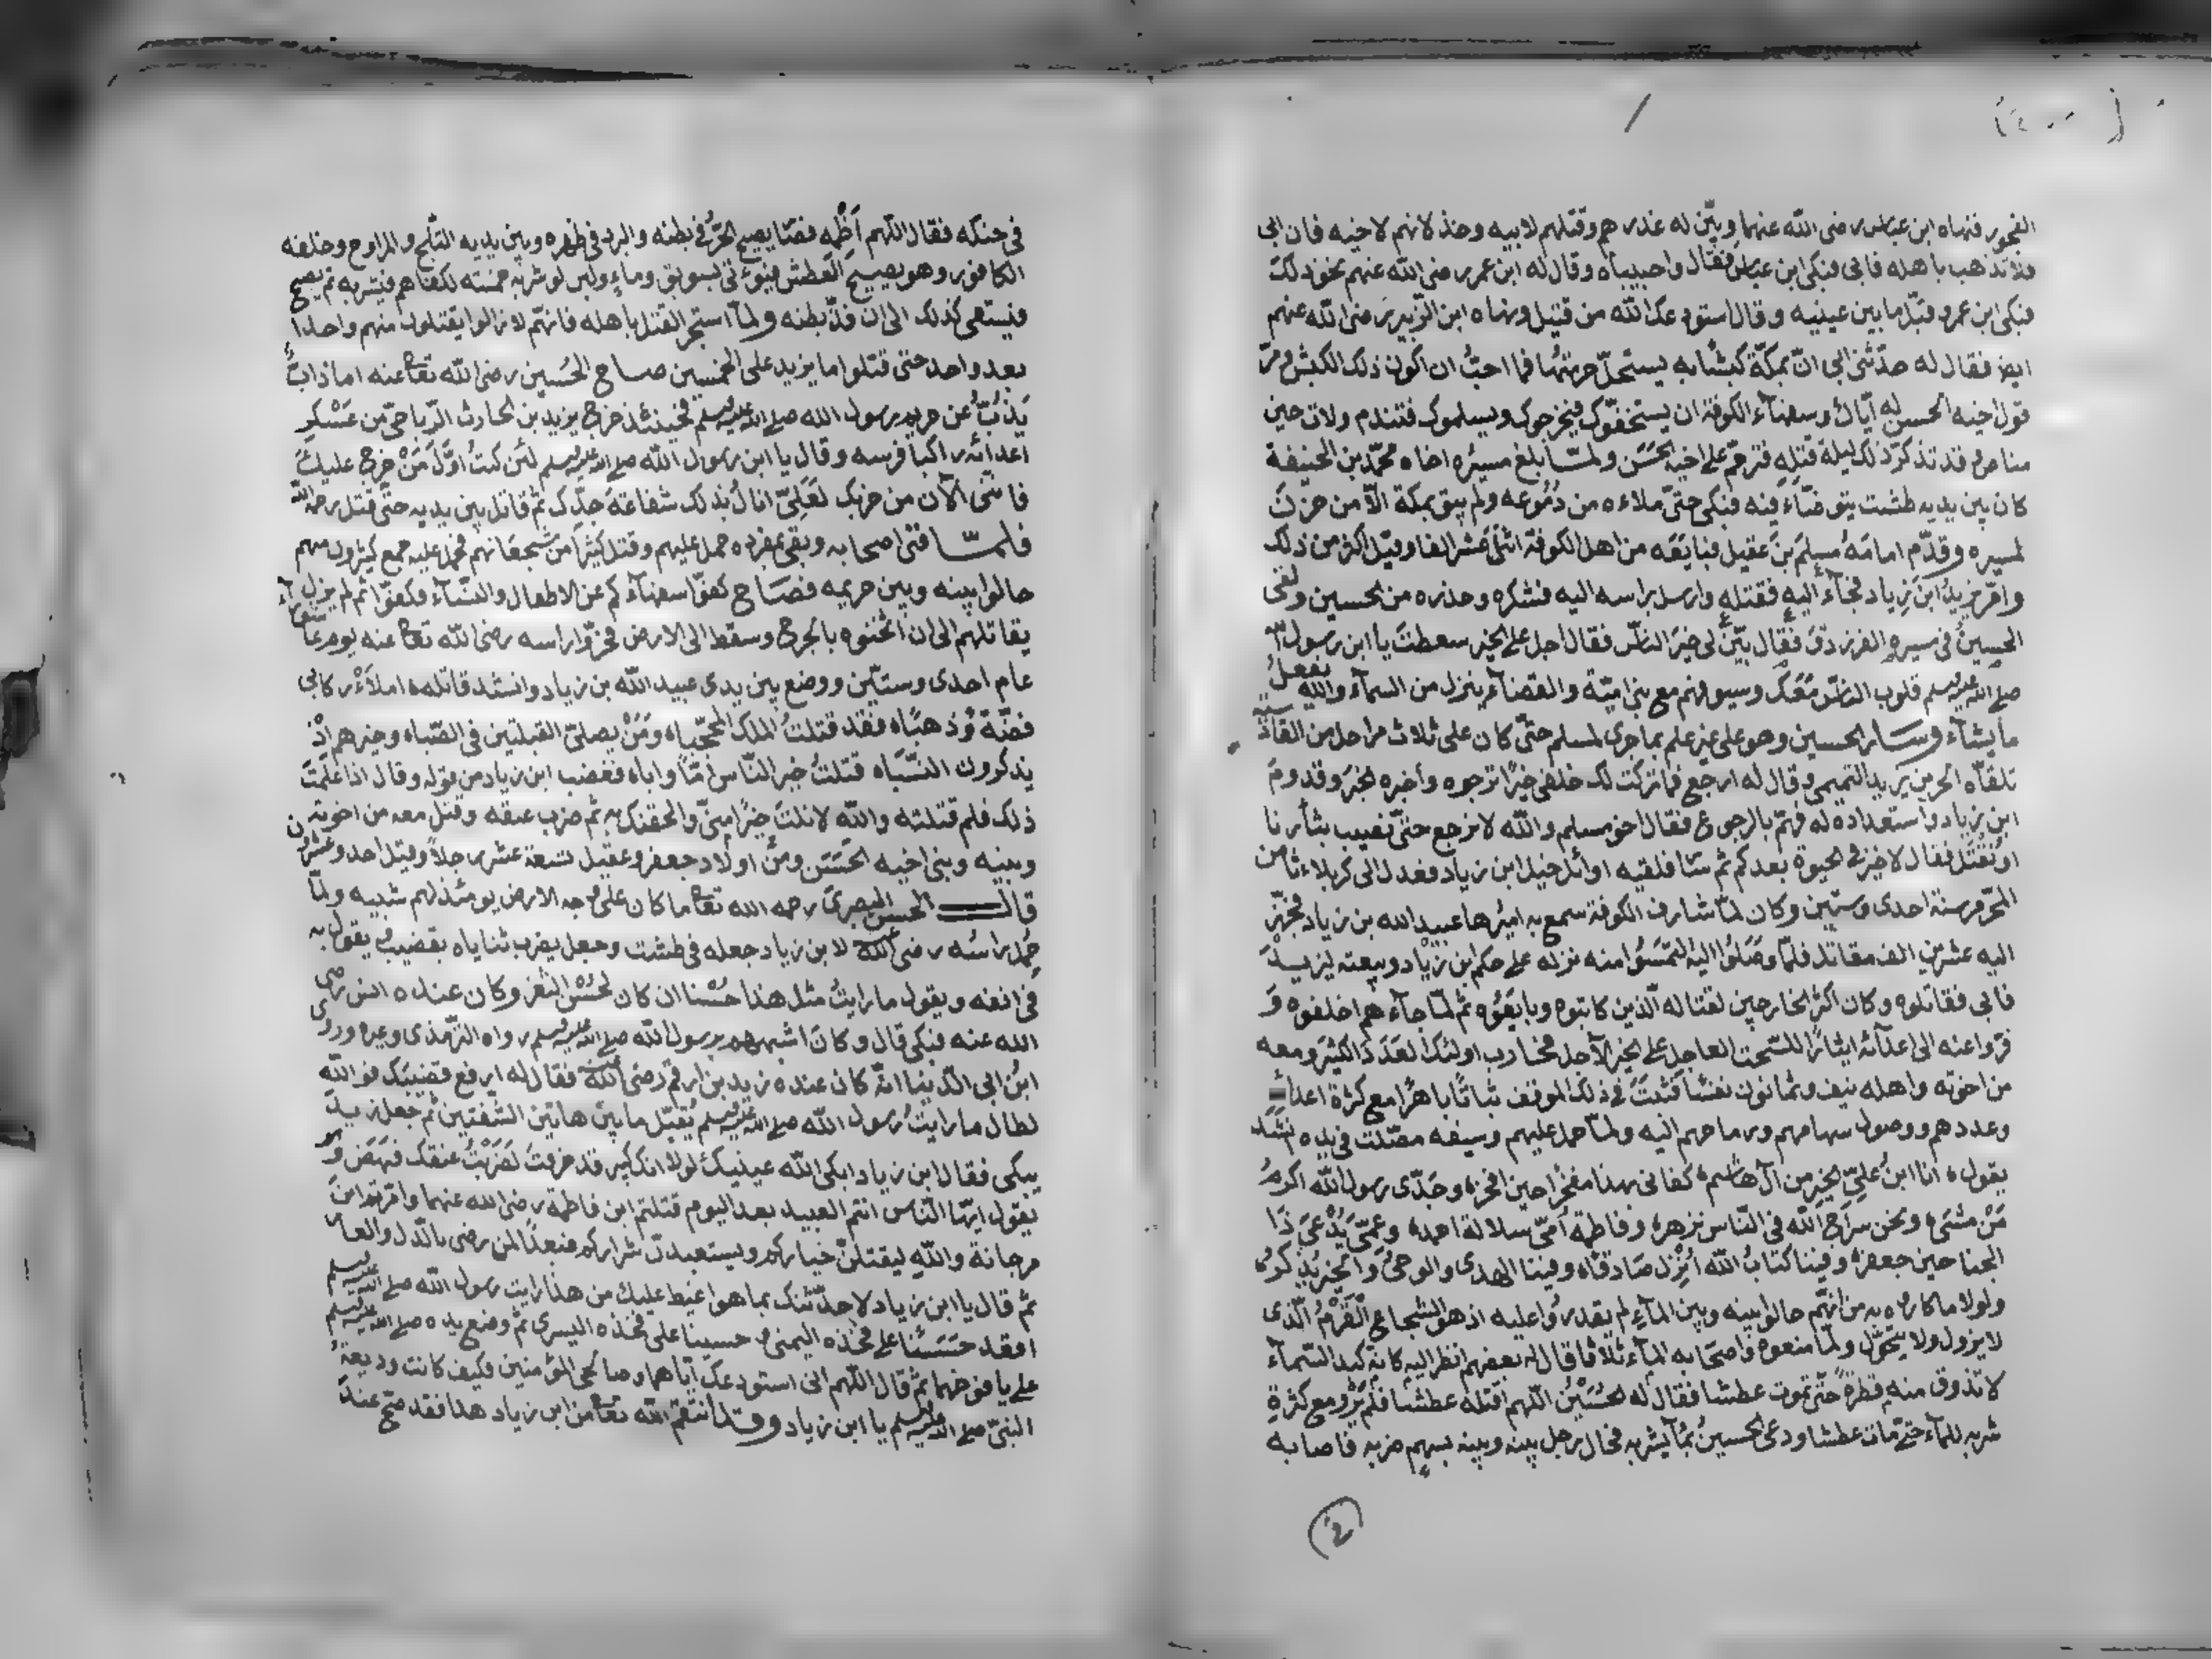 الفجور فنهاه ابن عباس رضى الله عنهما وبيّن له غدرهم وقتلهم لابيه وخذلانهم لاخيه فان ابى
فلا تذهب باهله فابى فبكى ابن عباس فقال واحبيباه وقال له ابن عمر رضى الله عنهم نحو ذلك
فبكى ابن عمر وقبّل ما بين عينيه وقال استودعك الله من قتيل ونهاه ابن الزبير رضى الله عنهم
ايضا فقال له حدّثنى ابى انّ بمكّة كبشًا به يستحلّ حرمتها فما احبُّ ان اكون ذلك الكبش ومرّ
قول اخيه الحسن له ايّاك وسفهآء الكوفة ان يستخفّوك فيخرجوك ويسلموك فتندم ولات حين
مناص وقد تذكّر ذلك ليلة قتله فترحّم على اخيه الحَسَن ولمّا بلغ مسيرُه اخاه محمّد بن الحنيفة
كان بين يديه طشت يتوضّاء فيه فبكى حتّى ملاءه من دُمُوعه ولم يبق بمكة الّا من حزن
لمسيره وقدّم امامَهُ مسلمَ بنَ عقيل فبايَعَه من اهل الكوفة اثنى عشر الفا وقيل اكثر من ذلك
وامّر يزيدُ ابنَ زياد فجآء اليه فقتله وارسل براسه اليه فشكره وحذره من الحسين ولقى
الحسينُ فى مسيره الفرزدقَ فقال بيّن لى خبرَ النّاس فقال اجل على الخبير سقطتَ يا ابن رسول الله
صلى الله عليه وسلم قلوب النّاس مَعَك وسيوفهم مع بنى اميّة والقضآء ينزل من السمآء والله يفعلُ
ما يشآء وسار الحسين وهو على غير علم بما جرى لمسلم حتّى كان على ثلاث مراحل من القادسية
تلقّاه الحر بن يزيد التميمى وقال له ارجع فما تركت لك خلفى خيرًا ترجوه واخبره الخبَر وقدومَ
ابن زياد واستعداده له فهمّ بالرجوع فقال اخو مسلم والله لا نرجع حتّى نصيب بثأرنا
او نُقتَل فقال لا خير فى الحيوة بعدكم ثم سَار فلقيه اوائل خيل ابن زياد فعدل الى كربلاء ثامن
المحّرم سنة احدى وستّين وكان لمّا شارف الكوفة سمع به اميرُها عبيد الله بن زياد فجهّز
اليه عشرين الف مقاتل فلمّا وصَلُوا اليهُ التمسُوا منه نزوله على حكم ابن زياد وبيعته ليزيدَ
فابى فقاتلوه وكان اكثرُ الخارجين لقتاله الّذين كاتبوه وبايَعُوه ثم لمّا جآءهم اخلفوه و
فرّوا عنه الى اعدآئه ايثارًا للسّحت العاجل على الخير الآجل فحارب اولئك العدَدَ الكثير ومعه
من اخوته واهله نيف وثمانون نفسًا فثبتَ فى ذلك الموقف ثباتًا باهرًا مع كثرة اعدائه
وعددهم ووصول سهامهم ورماحهم اليه ولمّا حمل عليهم وسيفه مصلت فى يده نشد
يقول انا ابنُ علىّ الخيرِ من آل هاشم كفانى بهذا مفخرًا حين افخر وجَدّى رسول الله اكرمُ
مَنْ مشَى ونحن سراجُ الله فى النّاس نزهر وفاطمةُ امّى سلالة احمد وعمّى يُدْعَى ذَا
الجناحين جعفر وفينا كتابُ الله اُنْزل صَادقًا وفينا الهدى والوحىُ والخير يذكرُ
ولولا ما كادوه به من انّهم حالوا بينه وبين المآءِ لم يقدرُوا عليه اذ هو الشجاع القَرْمُ الّذى
لا يزول ولا يتحوّل ولمّا منعوه واصحَابه المآء ثلاثا قال له بعضهم انظر اليه كانّه كبد السّمآء
لا تذوق منه قطرةً حتّى تموت عطشا فقال له الحُسَيْنُ اللّهم اقتله عطشا فلم يَرْوَ مع كثرة
شربه للمآء حتّى مات عطشا ودعى الحسينُ بمآء ليشربه فحال رجل بينه وبينه بسهم ضربه فاصابه
(2)
فى حنكه فقال اللّهم اَظْمِهِ فصَار يصيح الحرّ فى بطنه والبرد فى ظهره وبين يديه الثلج والمراوح وخلفه
الكافور وهو يصيح العَطش فيؤتى بسويق ومآءٍ ولبن لو شربه خمسة لكفاهم فيشربه ثم يصيح
فيستقى كذلك الى ان قدّ بطنه ولمّا استحرّ القتل باهله فانّهم لا زالوا يقتلون منهم واحدا
بعد واحد حتى قتلوا ما يزيد على الخمسين صاح الحُسَين رضى الله تعالى عنه اما ذابٌّ
يَذُبُّ عن حريم رسول الله صلى الله عليه وسلم فحينئذ خرج يزيد بن الحارث الرّياحىّ من عَسْكر
اعدائه راكبا فرسه وقال يا ابن رسول الله صلى الله عليه وسلم لئن كنتُ اوّلَ مَنْ خرج عليكَ
فانّى الآن من حزبك لَعَلِىّ انالُ بذلك شفاعةَ جدّك ثم قاتل بين يديه حتّى قتل رحمه الله
فلمّا فنى اصحابه وبقى بمفرده حمل عليهم وقتل كثيرًا من شجعانهم فحمل عليه جمع كثيرون منهم
حالوا بينه وبين حريمه فصَاح كفوّا سفهآءكم عن الاطفال والنسّآء فكفوّا ثم لم يزل
يقاتلهم الى ان اثخنوه بالجراح وسقط الى الارض فحزّوا راسه رضى الله تعالى عنه يوم عاشورآء
عام احدى وستيّن ووضع بين يدى عبيد الله بن زياد وانشد قاتله املأْ ركابى
فضّةً وُذهبًا فقد قتلتُ الملك المحجّبا ومَنْ يصلّى القبلتين فى الصّبا وخيرهم اذْ
يذكرون النسّبَا قتلتُ خيرَ النّاس امّا وابا فغضب ابن زياد من قوله وقال اذا علمتَ
ذلك فلم قتلته والله لا نلتَ خيرًا منىّ والحقنّك به ثم ضرب عنقه وقتل معه من اخوته
وبنيه وبنى اخيه الحَسَن ومن اولاد جعفر وعقيل تسعة عشر رجلاً وقيل احد وعشرون
قال الحسن البصرىّ رحمه الله تعالى ما كان على وجه الارض يومئذ لهم شبيه ولمّا
حُمل راسُه رضى الله عنه لابن زياد جعله فى طشت وجعل يضرب ثناياه بقضيب يقول به
فى انفه ويقول ما رايتُ مثل هذا حُسْنا ان كان لحُسْن الثغر وكان عنده انس رضى
الله عنه فبكى قال وكانَ اشبههم برسول الله صلى الله عليه وسلم رواه التّرمذى وغيره وروى
ابنُ ابى الدّنيا انّه كان عنده زيد بن ارقم رضى الله عنه فقال له ارفع قضيبَك فو الله
لطال ما رايتُ رسول الله صلى الله عليه وسلم يُقبّل ما بين هاتين الشفتين ثم جعل زيدٌ
يبكى فقال ابن زياد ابكى الله عينيك لولا انك كبير قد خرفتَ لضرَبْتُ عنقك فنهَض وهو
يقول ايّها النّاس انتم العبيد بعد اليوم قتلتم ابن فاطمة رضى الله عنهما وامّرتم ابنَ
مرجانة والله ليقتلنّ خياركم ويستعبدنّ شراركم فبعدًا لمن رضى بالذّل والعار
ثم قال يا ابن زياد لاحدّثنّك بما هو اغيظ عليك من هذا رايت رسول الله صلى الله عليه وسلم
اقعد حَسَنًا على فخذه اليمنى وحسينا على فخذه اليسرى ثم وضع يده صلى الله عليه وسلم
على يافوخهما ثم قال اللّهم انى استودعك ايّاهما وصالحى المؤمنين فكيف كانت وديعةُ
النبّى صلى الله عليه وسلم يا ابن زياد وقد انتقم الله تعالى من ابن زياد هذا فقد صحّ عندَ